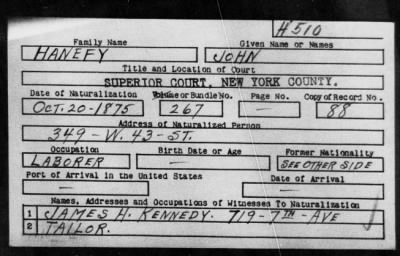 H510
Family Name Given Name or Names
HANEFY JOHN
Title and Location of Court
SUPERIOR COURT, NEW YORK COUNTY.
Date of Naturalization Volume or Bundle No. Page No. Copy of Record No.
OCT. 20-1875 267 — 88
Address of Naturalized Person
349 - W. 43 - ST.
Occupation Birth Date or Age Former Nationality
LABORER — SEE OTHER SIDE
Port of Arrival in the United States Date of Arrival
— —
Names, Addresses and Occupations of Witnesses To Naturalization
1 JAMES H. KENNEDY. 719-7TH-AVE
2 TAILOR.